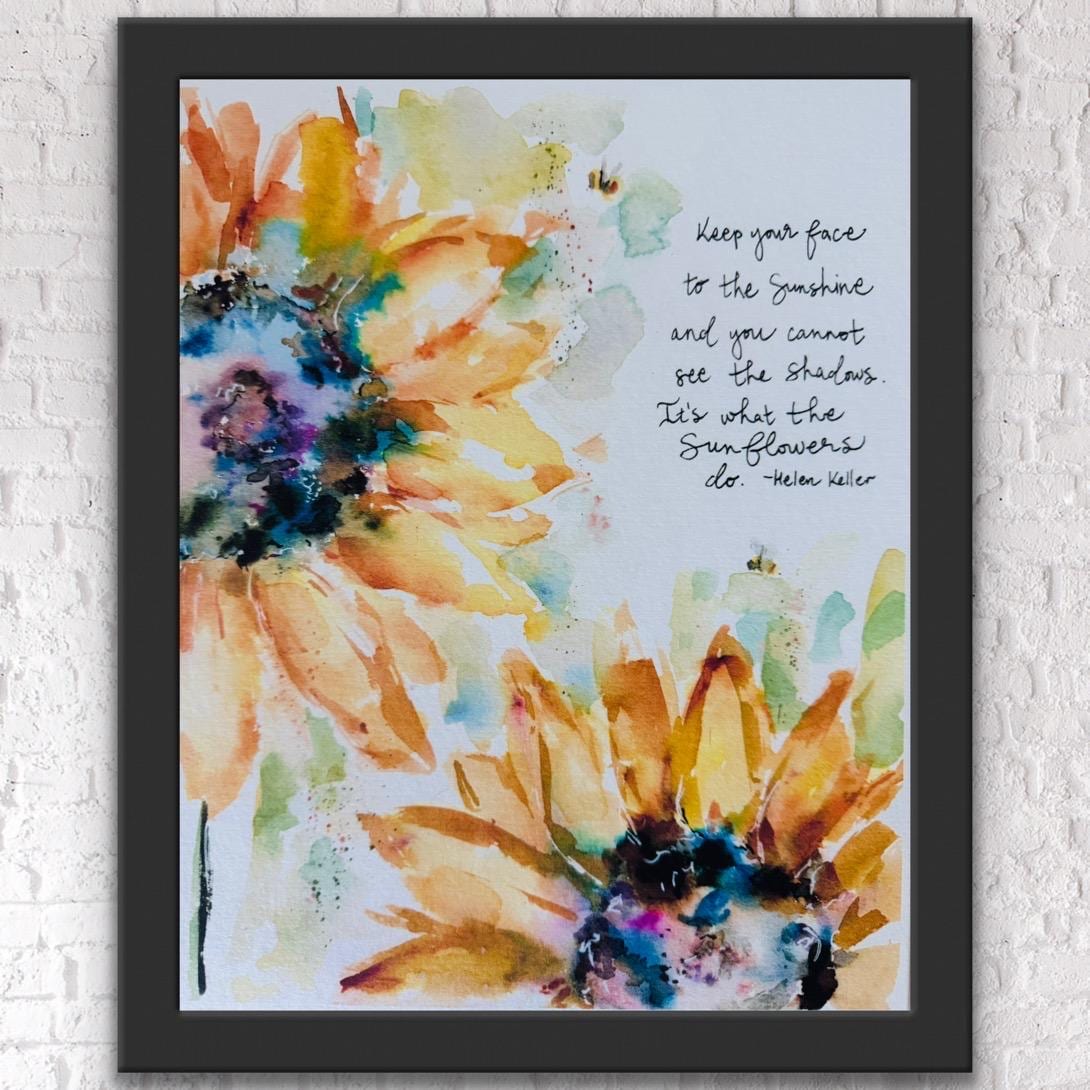 Keep your face
to the Sunshine
and you cannot
see the shadows.
It's what the
Sunflowers
do. -Helen Keller